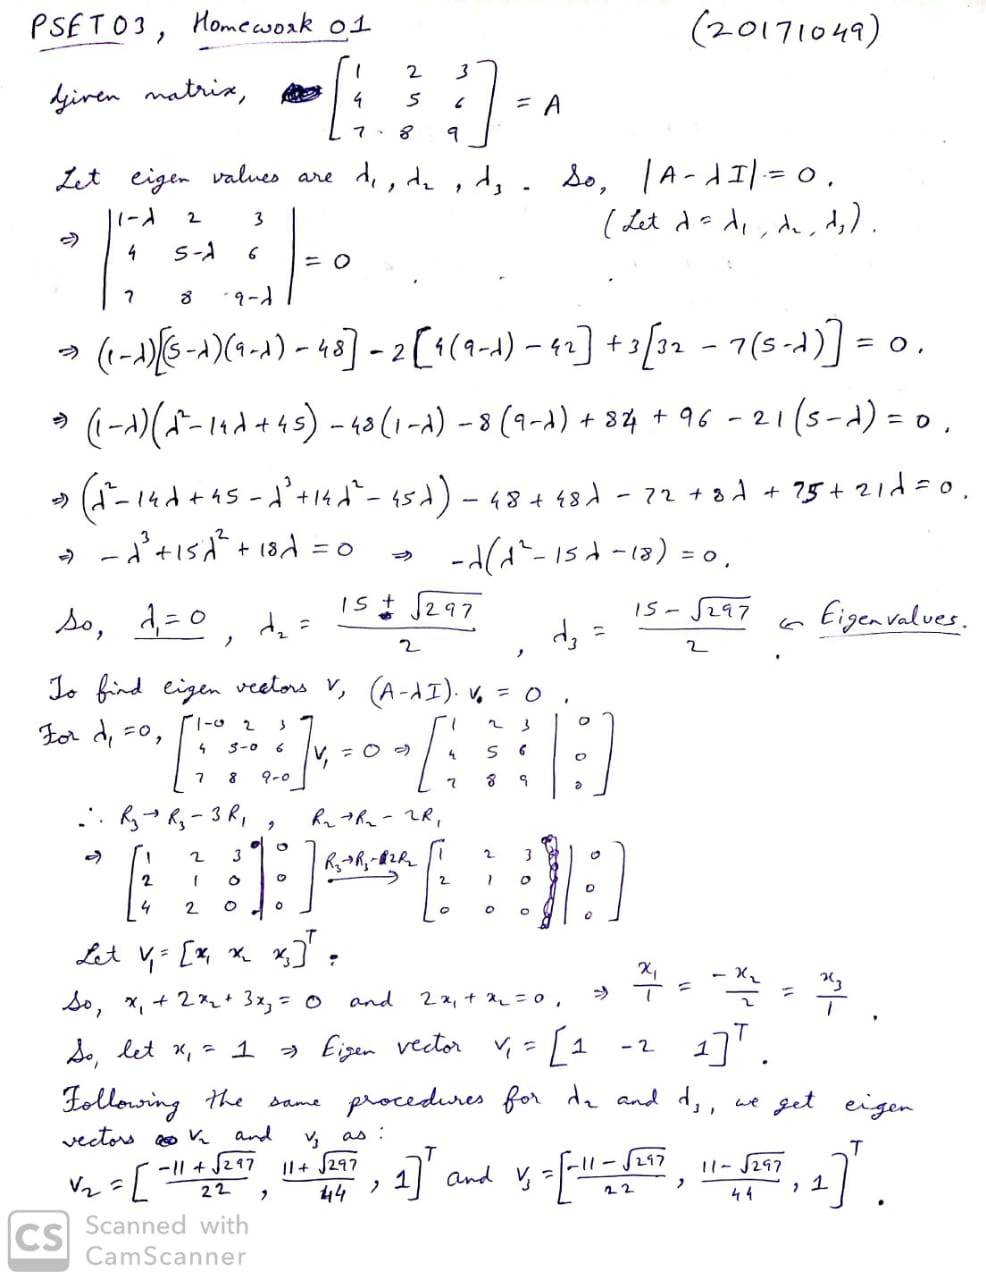 PSET03, Homework 01 (20171049)
Given matrix, [1 2 3; 4 5 6; 7 8 9] = A
Let eigen values are λ₁, λ₂, λ₃. So, |A-λI| = 0.
(Let λ = λ₁, λ₂, λ₃).
⇒ |1-λ 2 3; 4 5-λ 6; 7 8 9-λ| = 0
⇒ (1-λ)[(5-λ)(9-λ) - 48] - 2[4(9-λ) - 42] + 3[32 - 7(5-λ)] = 0.
⇒ (1-λ)(λ² - 14λ + 45) - 48(1-λ) - 8(9-λ) + 84 + 96 - 21(5-λ) = 0.
⇒ (λ² - 14λ + 45 - λ³ + 14λ² - 45λ) - 48 + 48λ - 72 + 8λ + 75 + 21λ = 0.
⇒ -λ³ + 15λ² + 18λ = 0 ⇒ -λ(λ² - 15λ - 18) = 0.
So, λ₁ = 0, λ₂ = (15 ± √297)/2, λ₃ = (15 - √297)/2 ← Eigenvalues.
To find eigen vectors v, (A-λI).v = 0.
For λ₁ = 0, [1-0 2 3; 4 5-0 6; 7 8 9-0] v₁ = 0 ⇒ [1 2 3 | 0; 4 5 6 | 0; 7 8 9 | 0]
∴ R₃ → R₃ - 3R₁, R₂ → R₂ - 2R₁
⇒ [1 2 3 | 0; 2 1 0 | 0; 4 2 0 | 0] R₃→R₃-2R₂ → [1 2 3 | 0; 2 1 0 | 0; 0 0 0 | 0]
Let v₁ = [x₁ x₂ x₃]ᵀ.
So, x₁ + 2x₂ + 3x₃ = 0 and 2x₁ + x₂ = 0, ⇒ x₁/1 = -x₂/2 = x₃/1.
So, let x₁ = 1 ⇒ Eigen vector v₁ = [1 -2 1]ᵀ.
Following the same procedures for λ₂ and λ₃, we get eigen
vectors v₂ and v₃ as :
v₂ = [(-11 + √297)/22, (11 + √297)/44, 1]ᵀ and v₃ = [(-11 - √297)/22, (11 - √297)/44, 1]ᵀ.
CS Scanned with
CamScanner